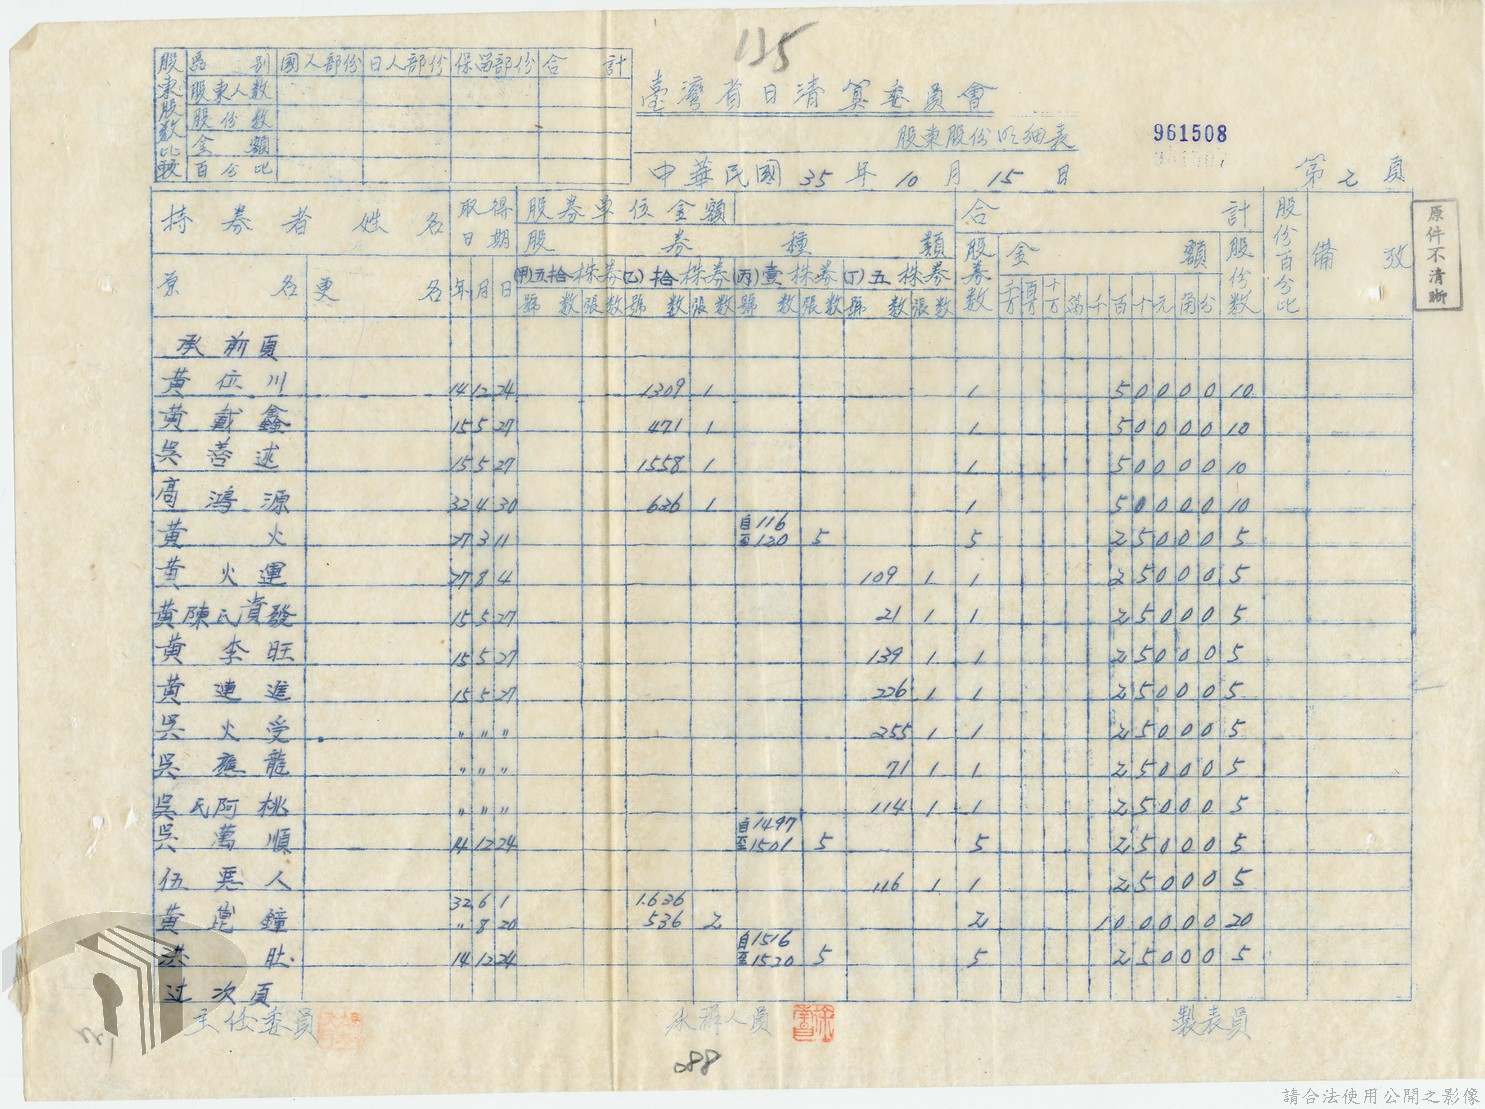 135
股東股數比較
區別 國人部份 日人部份 保留部份 合計
股東人數
股份數
金額
百分比
臺灣省日清算委員會
股東股份明細表
961508
中華民國35年10月15日
第2頁
原件不清晰
持券者姓名 取得日期 股券單位金額 合計 股份百分比 備攷
股券種類 股券數 金額 股份數
原名 更名 年 月 日 (甲)五拾株券 (乙)拾株券 (丙)壹株券 (丁)五株券
號數 張數 號數 張數 號數 張數 號數 張數 千万 百万 十万 萬 千 百 十 元 角 分
承前頁
黃位川 14 12 24 1309 1 1 50000 10
黃戴鑫 15 5 27 471 1 1 50000 10
吳善述 15 5 27 1558 1 1 50000 10
高鴻源 32 4 30 636 1 1 50000 10
黃火 27 3 11 自116至120 5 5 25000 5
黃火運 27 8 4 109 1 1 25000 5
黃陳氏資發 15 5 27 21 1 1 25000 5
黃李旺 15 5 27 139 1 1 25000 5
黃連進 15 5 27 226 1 1 25000 5
吳火受 〃 〃 〃 255 1 1 25000 5
吳應龍 〃 〃 〃 71 1 1 25000 5
吳氏阿桃 〃 〃 〃 114 1 1 25000 5
吳萬順 14 12 24 自1497至1501 5 5 25000 5
伍惡人 116 1 1 25000 5
32 6 1 1.636
黃崑鐘 〃 8 20 536 2 2 100000 20
洪肚 14 12 24 自1516至1520 5 5 25000 5
过次頁
主任委員 承辦人員 製表員
088
請合法使用公開之影像